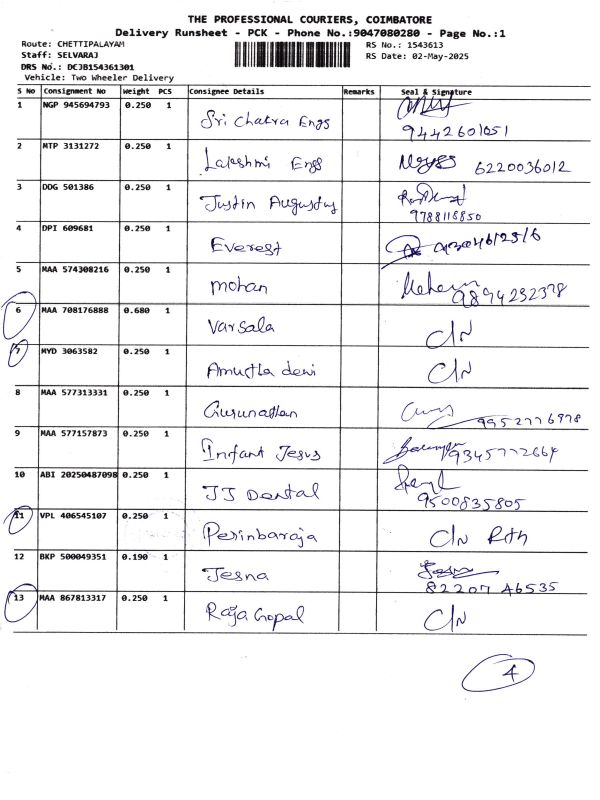 THE PROFESSIONAL COURIERS, COIMBATORE
Delivery Runsheet - PCK - Phone No.:9047080280 - Page No.:1
Route: CHETTIPALAYAM
Staff: SELVARAJ
DRS No.: DCJB154361301
Vehicle: Two Wheeler Delivery
RS No.: 1543613
RS Date: 02-May-2025
S No Consignment No Weight PCS Consignee Details Remarks Seal & Signature
1 NGP 945694793 0.250 1 Sri Chakra Engs 9442601051
2 MTP 3131272 0.250 1 Lakshmi Engs 6220036012
3 DDG 501386 0.250 1 Justin Augustus 9788118850
4 DPI 609681 0.250 1 Everest
5 MAA 574308216 0.250 1 mohan 9894232378
6 MAA 708176888 0.680 1 Varsala C/N
7 MYD 3063582 0.250 1 Amutha devi C/N
8 MAA 577313331 0.250 1 Gurunathan 9952776978
9 MAA 577157873 0.250 1 Infant Jesus 9345772664
10 ABI 20250487098 0.250 1 JJ Dental 9500835805
11 VPL 406545107 0.250 1 Perinbaraja C/N Rth
12 BKP 500049351 0.190 1 Jesna 82207 46535
13 MAA 867813317 0.250 1 Raja Gopal C/N
4